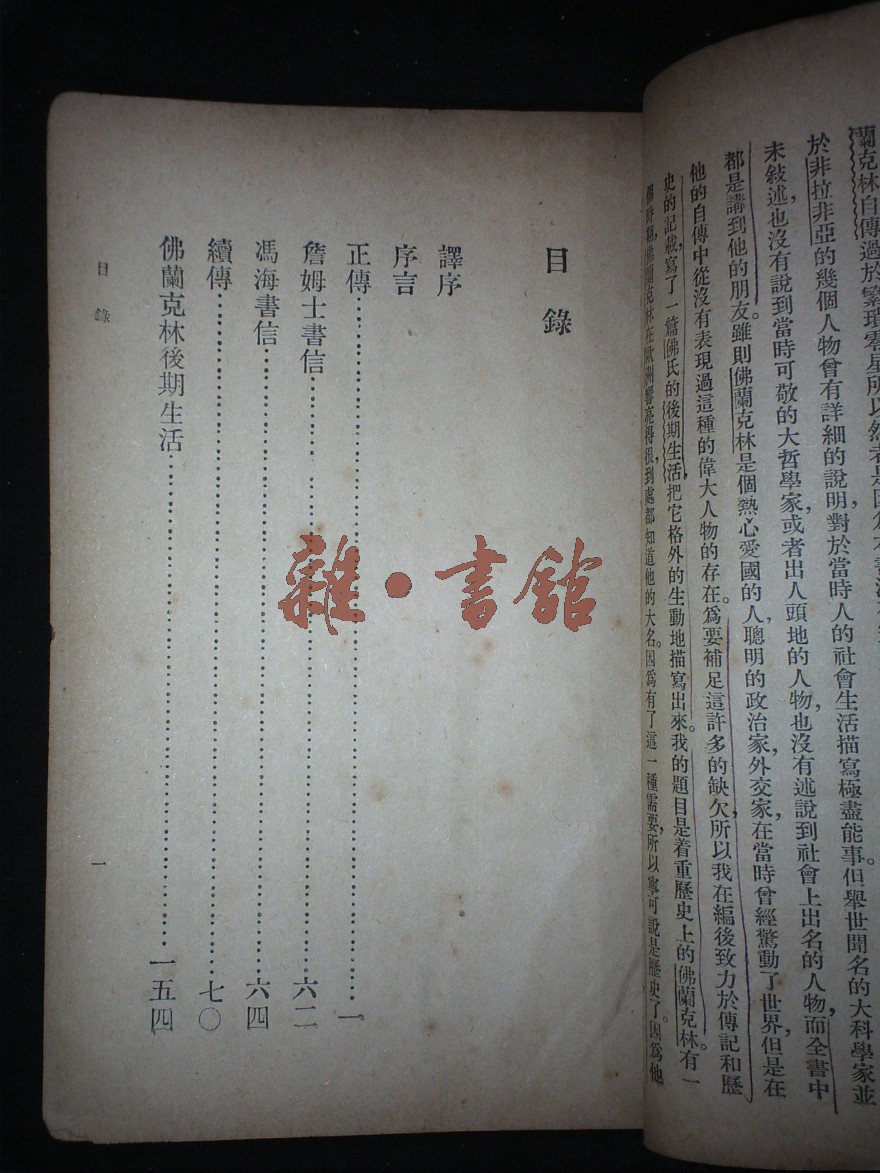 蘭克林自傳過於繁瑣零星所以然者是因爲本書
於非拉非亞的幾個人物曾有詳細的說明,對於當時人的社會生活描寫極盡能事。但舉世聞名的大科學家並
未敍述也沒有說到當時可敬的大哲學家,或者出人頭地的人物,也沒有述說到社會上出名的人物,而全書中
都是講到他的朋友。雖則佛蘭克林是個熱心愛國的人,聰明的政治家,外交家,在當時曾經驚動了世界,但是在
他的自傳中從沒有表現過這種的偉大人物的存在。爲要補足這許多的缺欠,所以我在編後致力於傳記和歷
史的記載,寫了一篇佛氏的後期生活,把它格外的生動地描寫出來。我的題目是着重歷史上的佛蘭克林。有一
個時期,佛蘭克林在歐洲響亮得很,到處都知道他的大名。因爲有了這一種需要,所以寧可說是歷史了。因爲他
目錄
譯序
序言
正傳 一
詹姆士書信 六二
馮海書信 六四
續傳 七〇
佛蘭克林後期生活 一五四
目錄 一
雜·書館